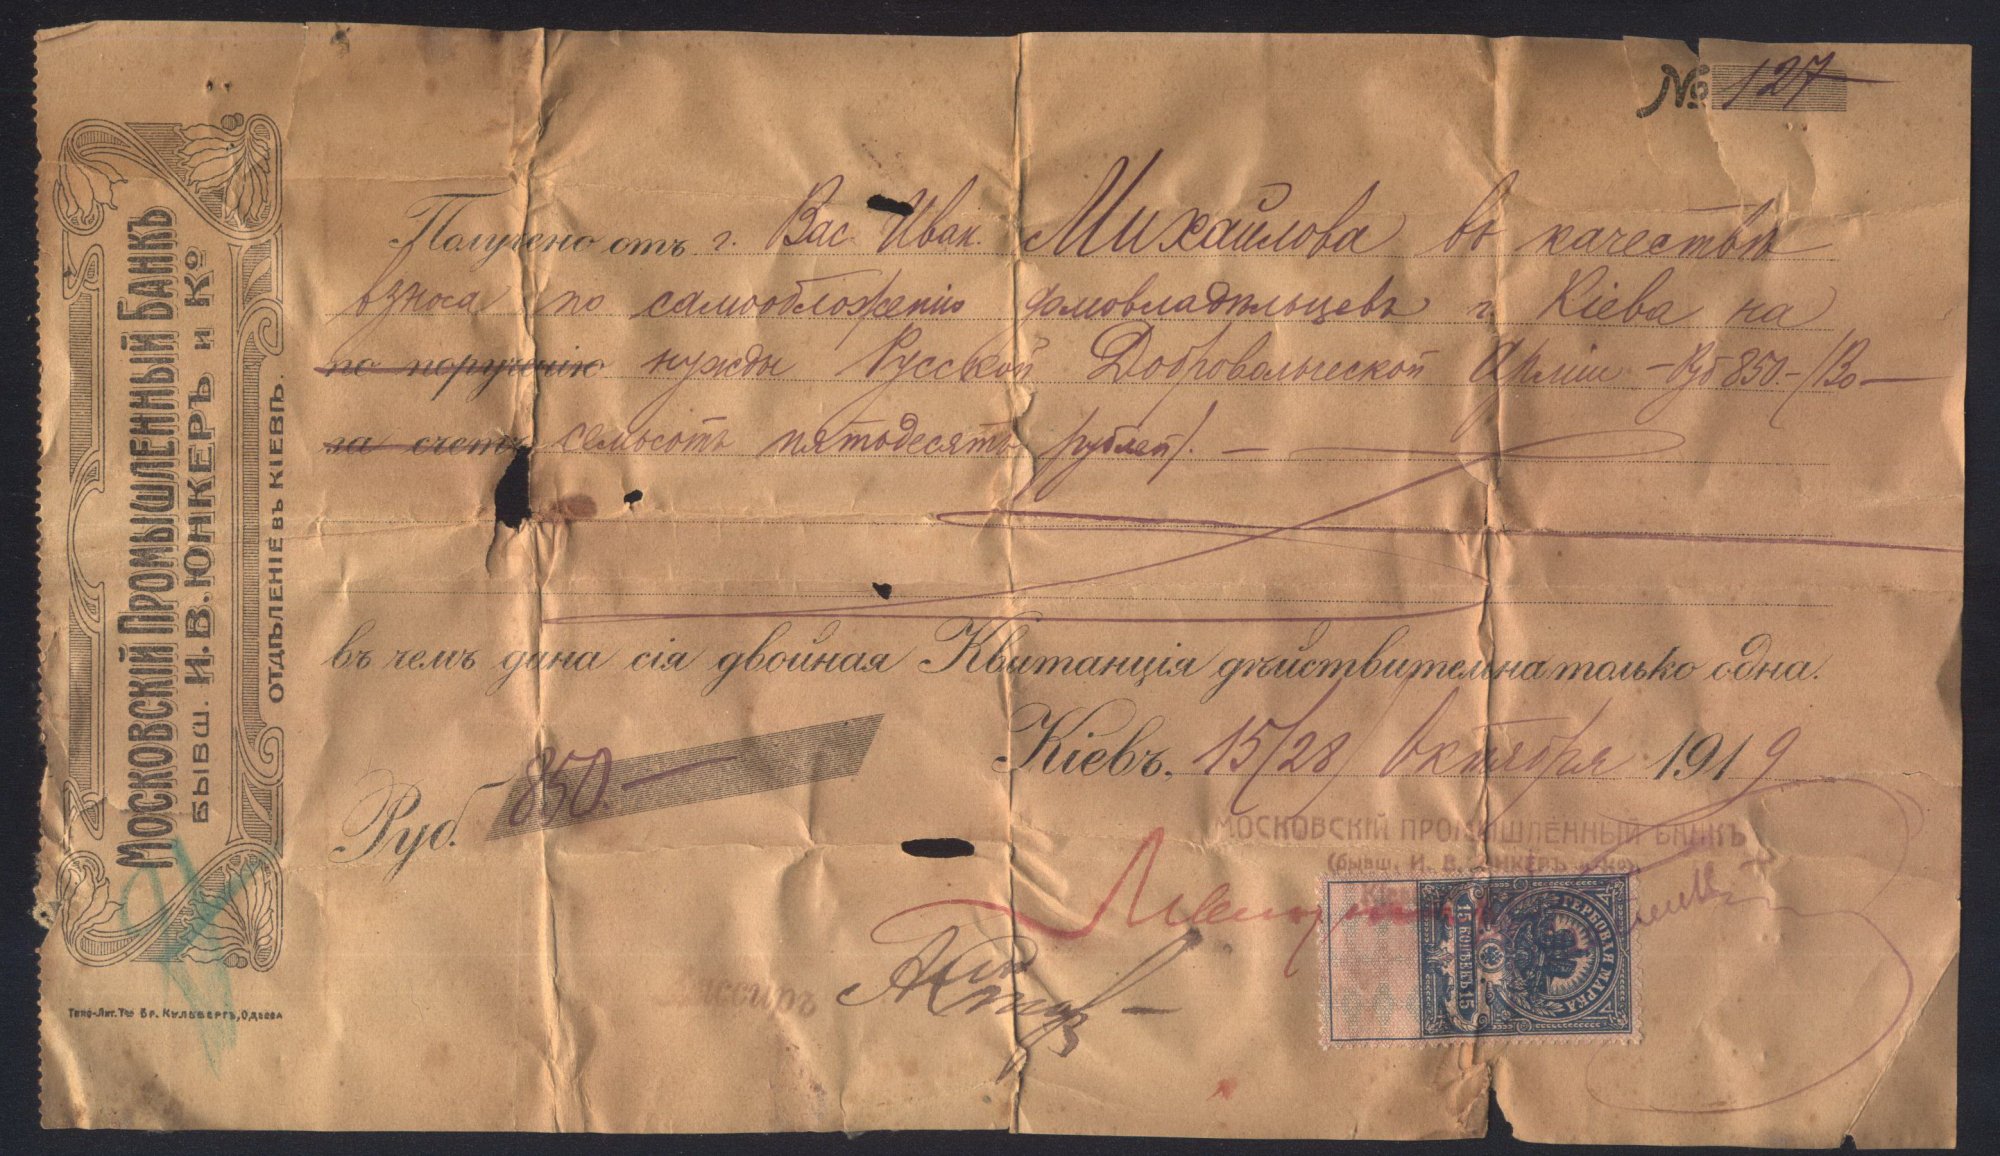 № 127
МОСКОВСКІЙ ПРОМЫШЛЕННЫЙ БАНКЪ
БЫВШ. И. В. ЮНКЕРЪ и Ко
ОТДѢЛЕНІЕ ВЪ КІЕВѢ.
Получено отъ г. Вас. Иван. Михайлова въ качествѣ
взноса по самообложенію домовладѣльцевъ г. Кіева на
по порученію нужды Русской Добровольческой Арміи - Руб 850.- (Во-
за счетъ семьсотъ пятьдесятъ рублей). -
въ чемъ дана сія двойная Квитанція дѣйствительна только одна.
Кіевъ, 15/28 Октября 1919
Руб. 850. -
МОСКОВСКІЙ ПРОМЫШЛЕННЫЙ БАНКЪ
(бывш. И. В. ЮНКЕРЪ и Ко)
Кассиръ
ГЕРБОВАЯ МАРКА
15 КОПѢЕКЪ 15
Типо-Лит. Тва Бр. Кульбергъ, Одесса